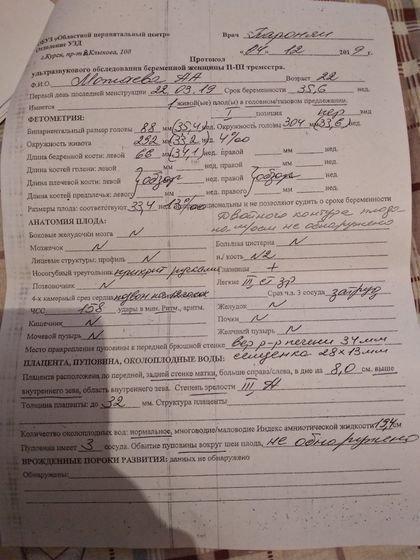 ОБУЗ «Областной перинатальный центр»
отделение УЗД
г.Курск, пр-т В.Клыкова, 100
Врач
04. 12 2019 г.
Протокол
ультразвукового обследования беременной женщины II-III триместра.
Ф.И.О. АА Возраст 22
Первый день последней менструации 22.03.19 Срок беременности 35,6 нед.
Имеется 1 живой(ые) плод(ы) в головном/тазовом предлежании.
ФЕТОМЕТРИЯ: I позиция
Бипариентальный размер головы 88 мм (35,4) нед. Окружность головы 304 мм (33,6) нед.
Окружность живота 292 мм (33,2) нед. 4%
Длина бедренной кости: левой 66 мм (34,1) нед. правой мм нед.
Длина костей голени: левой мм нед. правой мм нед.
Длина плечевой кости: левой обзор мм нед. правой обзор мм нед.
Длина костей предплечья: левой мм нед. правой мм нед.
Размеры плода: соответствуют 33,4 нед. и не позволяют судить о сроке беременности
АНАТОМИЯ ПЛОДА: Двойного контура плода
не обнаружено
Боковые желудочки мозга N
Мозжечок N Большая цистерна N
Лицевые структуры: профиль N н/кость N
Носогубный треугольник прикрыт руками
Позвоночник N Легкие III ст зр
4-х камерный срез сердца Срез ч.з. 3 сосуда затруд
ЧСС 158 удары в мин. Ритм, аритм. Желудок N
Кишечник N Почки N
Мочевой пузырь N Желчный пузырь N
Место прикрепления пуповины к передней брюшной стенке вер р-р печени 34 мм
селезенка 28х13мм
ПЛАЦЕНТА, ПУПОВИНА, ОКОЛОПЛОДНЫЕ ВОДЫ:
Плацента расположена по передней, задней стенке матки, больше справа/слева, в дне на 8,0 см. выше
внутреннего зева, область внутреннего зева. Степень зрелости III
Толщина плаценты: до 32 мм. Структура плаценты
Количество околоплодных вод: нормальное, многоводие/маловодие Индекс амниотической жидкости см
Пуповина имеет 3 сосуда. Обвитие пуповины вокруг шеи плода, не обнаружено
ВРОЖДЕННЫЕ ПОРОКИ РАЗВИТИЯ: данных не обнаружено
Обнаружены: